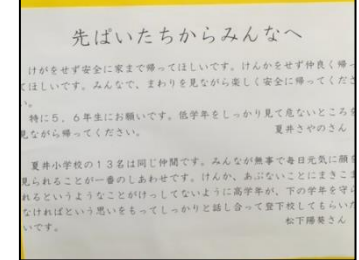 先ぱいたちからみんなへ
けがをせず安全に家まで帰ってほしいです。けんかをせず仲良く帰っ
てほしいです。みんなで、まわりを見ながら楽しく安全に帰ってくださ
い。
特に5、6年生にお願いです。低学年をしっかり見て危ないところを
見ながら帰ってください。 夏井さやのさん
夏井小学校の13名は同じ仲間です。みんなが無事で毎日元気に顔を
見られることが一番のしあわせです。けんか、あぶないことにまきこま
れるというようなことがけっしてないように高学年が、下の学年を守ら
なければという思いをもってしっかりと話し合って登下校してもらいた
いです。 松下陽葵さん